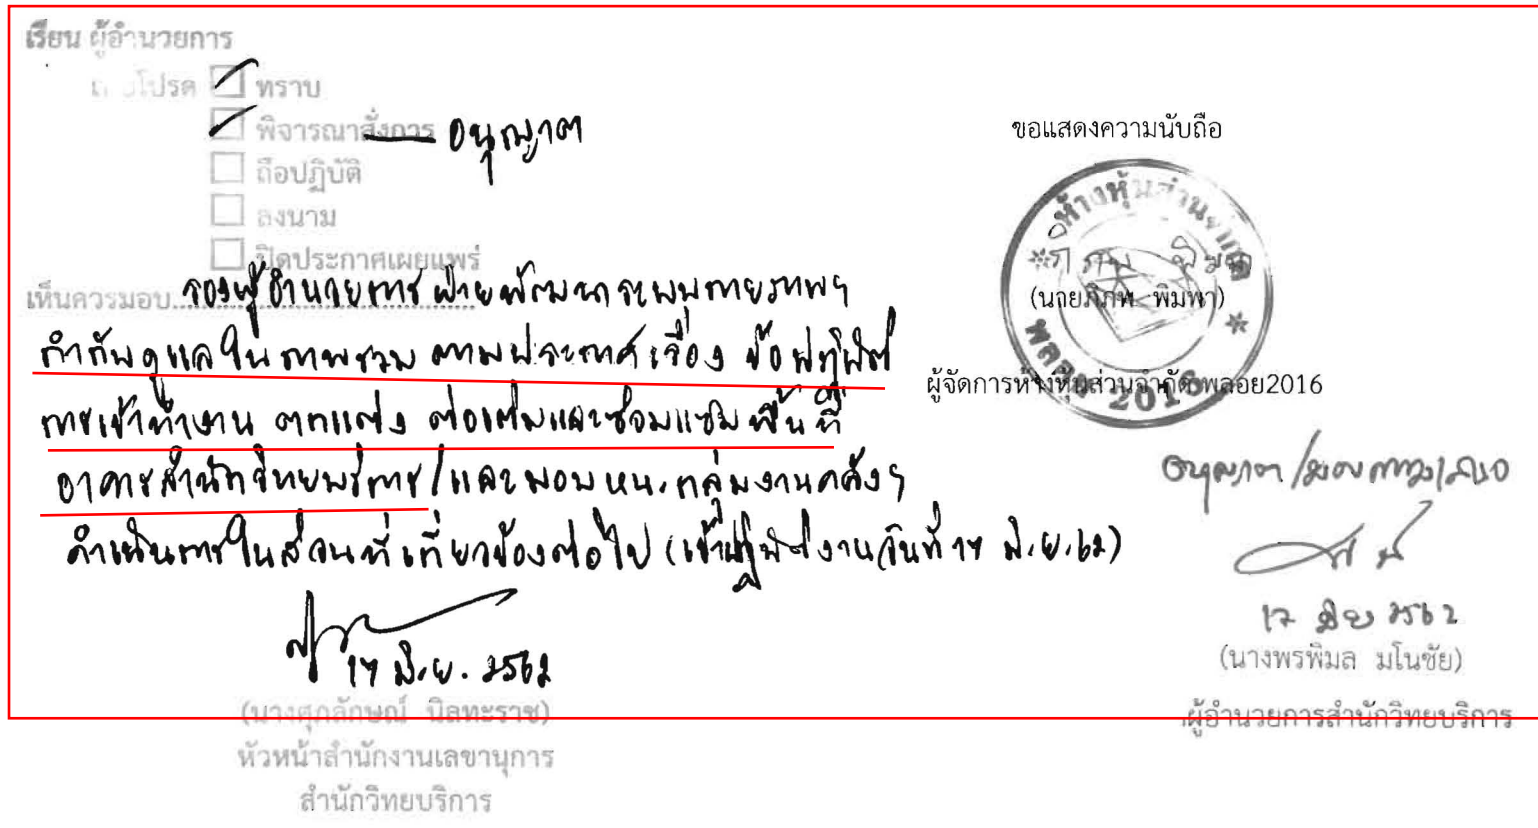 เรียน ผู้อำนวยการ
โปรด ทราบ
พิจารณาสั่งการ — อนุญาต
ถือปฏิบัติ
ลงนาม
ปิดประกาศเผยแพร่
เห็นควรมอบ รองผู้อำนวยการฝ่ายพัฒนา
กำกับดูแลในภาพรวม ตามประกาศเรื่อง ข้อปฏิบัติ
การเข้าทำงาน ตกแต่ง ต่อเติมและซ่อมแซมพื้นที่
อาคารสำนักวิทยบริการ/และมอบ หน.กลุ่มงานคลังฯ
ดำเนินการในส่วนที่เกี่ยวข้องต่อไป (เข้าปฏิบัติงานวันที่ 17 มิ.ย.62)
17 มิ.ย. 2562
(นางศุภลักษณ์ นิลทะราช)
หัวหน้าสำนักงานเลขานุการ
สำนักวิทยบริการ
ขอแสดงความนับถือ
ห้างหุ้นส่วนจำกัด
พลอย 2016
(นายภิภพ พิมพา)
ผู้จัดการห้างหุ้นส่วนจำกัด พลอย2016
อนุญาต/มอบตามเสนอ
17 มิย 2562
(นางพรพิมล มโนชัย)
ผู้อำนวยการสำนักวิทยบริการ